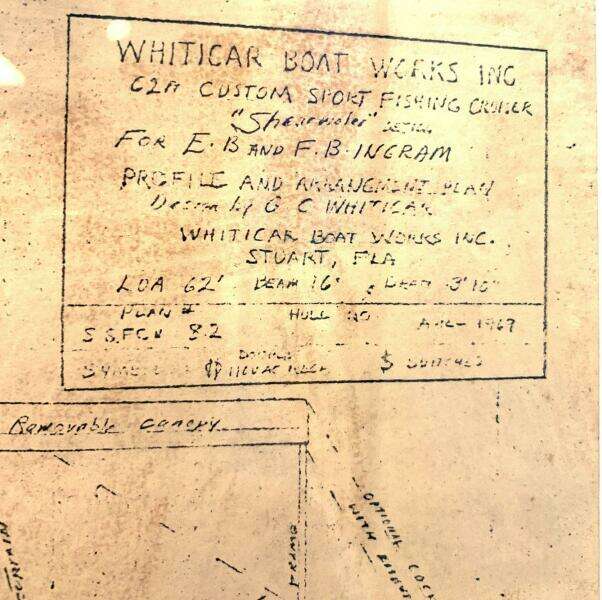 WHITICAR BOAT WORKS INC
62ft CUSTOM SPORT FISHING CRUISER
"Shearwater" DESIGN
FOR E.B AND F.B. INGRAM
PROFILE AND ARRANGMENT PLAN
Design by G C WHITICAR
WHITICAR BOAT WORKS INC.
STUART, FLA
LOA 62' BEAM 16'
PLAN # HULL NO
1967
Removable Canopy
CURTAIN
OPTIONAL
WITH